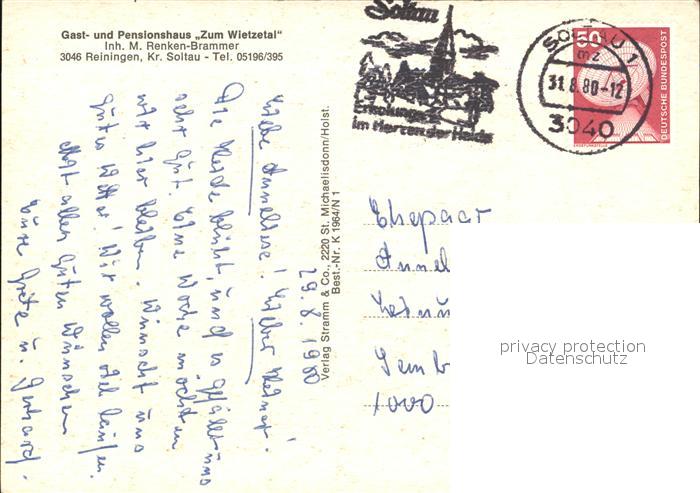 Gast- und Pensionshaus „Zum Wietzetal"
Inh. M. Renken-Brammer
3046 Reiningen, Kr. Soltau - Tel. 05196/395
Soltau
Erholung
im Herzen der Heide
SOLTAU 1
mz
31.8.80-12
3040
50
DEUTSCHE BUNDESPOST
29.8.1980
Liebe Anneliese! Lieber Helmut!
Die Heide blüht, und es gefällt uns
sehr gut. Eine Woche möchten
wir hier bleiben. Wünscht uns
gutes Wetter! Wir wollen viel laufen.
Mit allen guten Wünschen
Eure Grete u. Gerhard.
Verlag Stramm & Co., 2220 St. Michaelisdonn/Holst.
Best.-Nr.: K 1964/N 1
Ehepaar
Annel
1000
privacy protection
Datenschutz